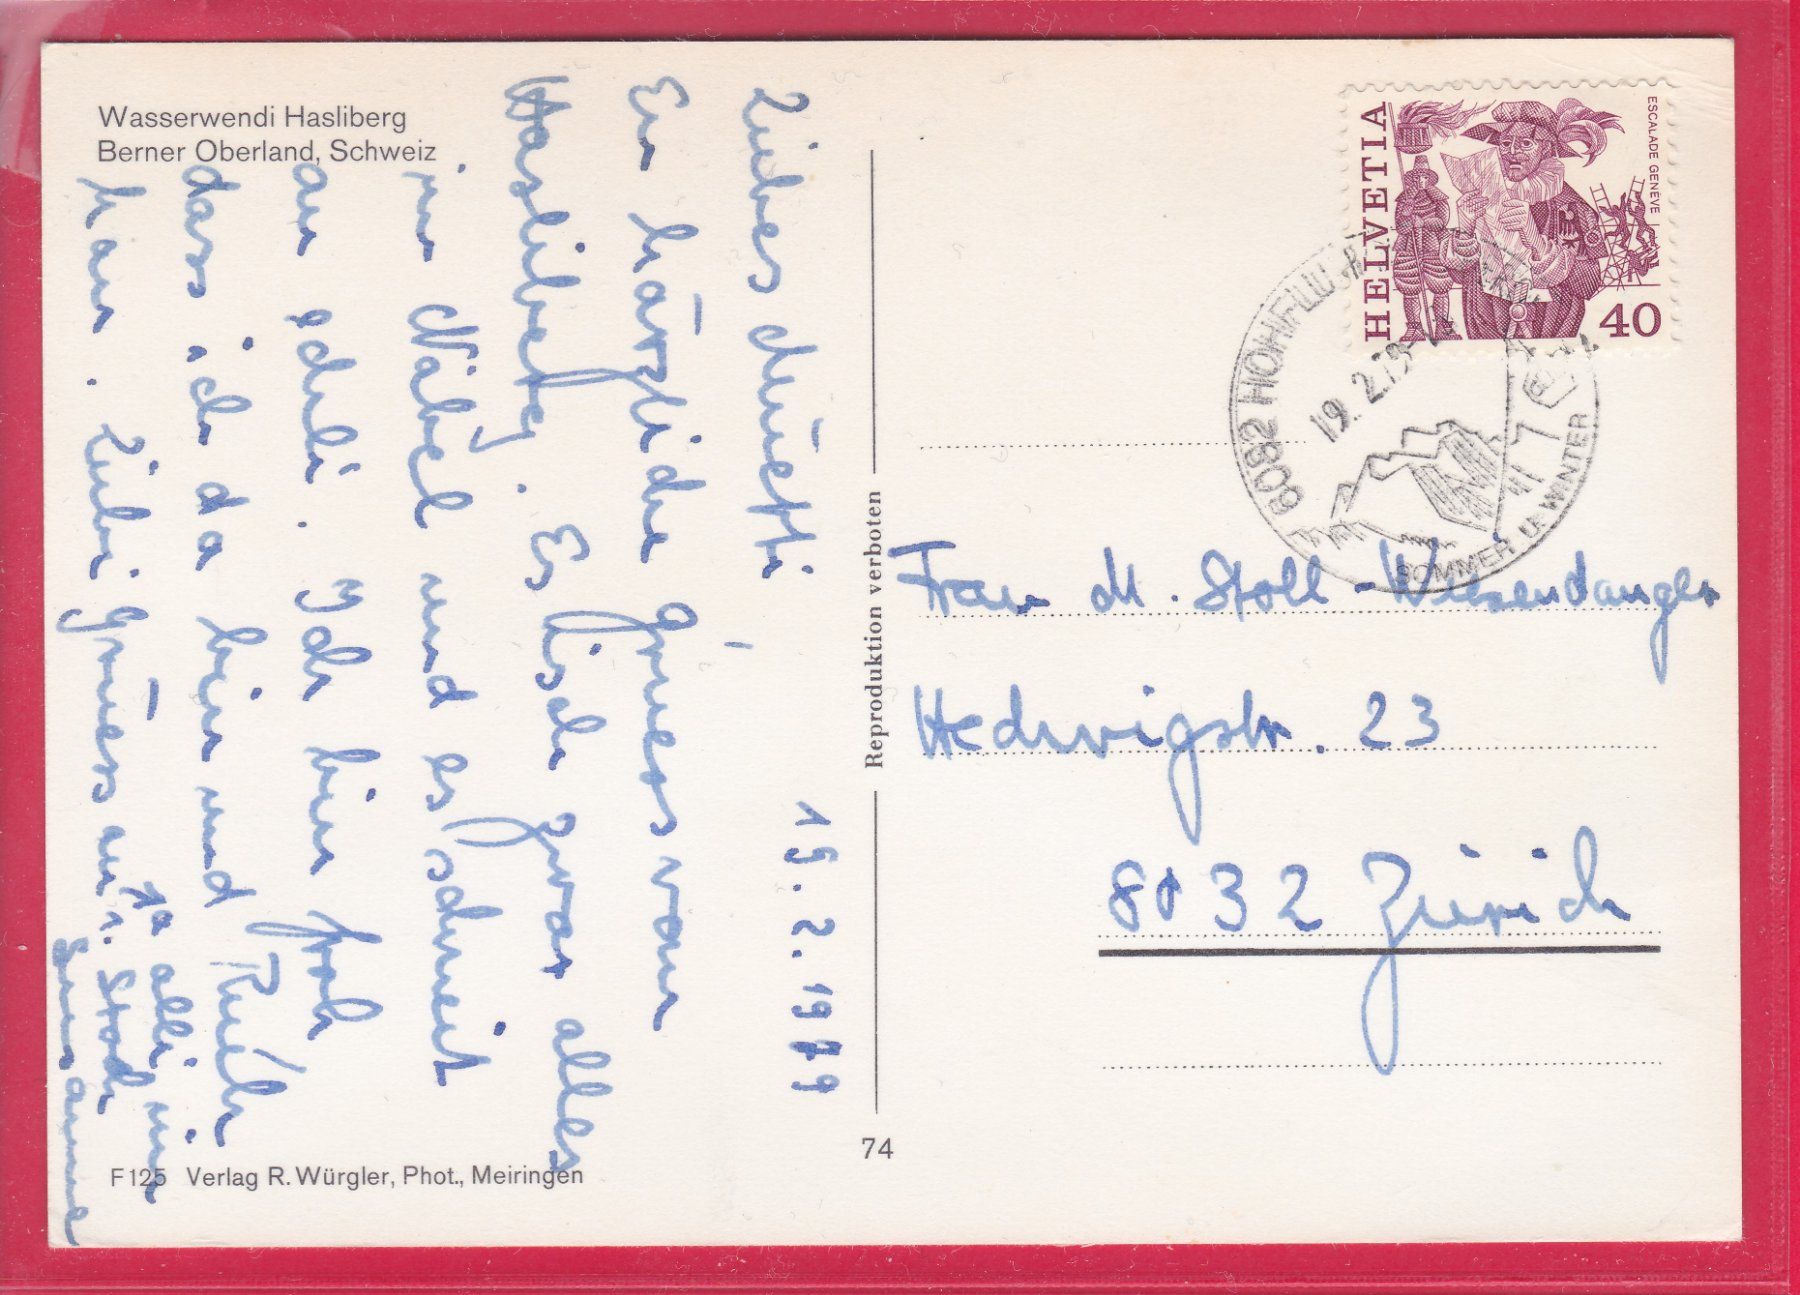 Wasserwendi Hasliberg
Berner Oberland, Schweiz
19.2.1979
Liebes Müetti
En härzliche Gruess vom
Hasliberg. Es isch zwar alles
im Näbel und es schneit
au echli. Ich bin froh
dass ich da bin und Rueh
han. Liebi Grüess au a alli im
1. Stock
Susanne
Reproduktion verboten
74
F125 Verlag R. Würgler, Phot., Meiringen
HELVETIA
ESCALADE GENEVE
40
6082 HOHFLUH
19.2.79
SOMMER U. WINTER
Frau M. Stoll-Wiesendanger
Hedwigstr. 23
8032 Zürich